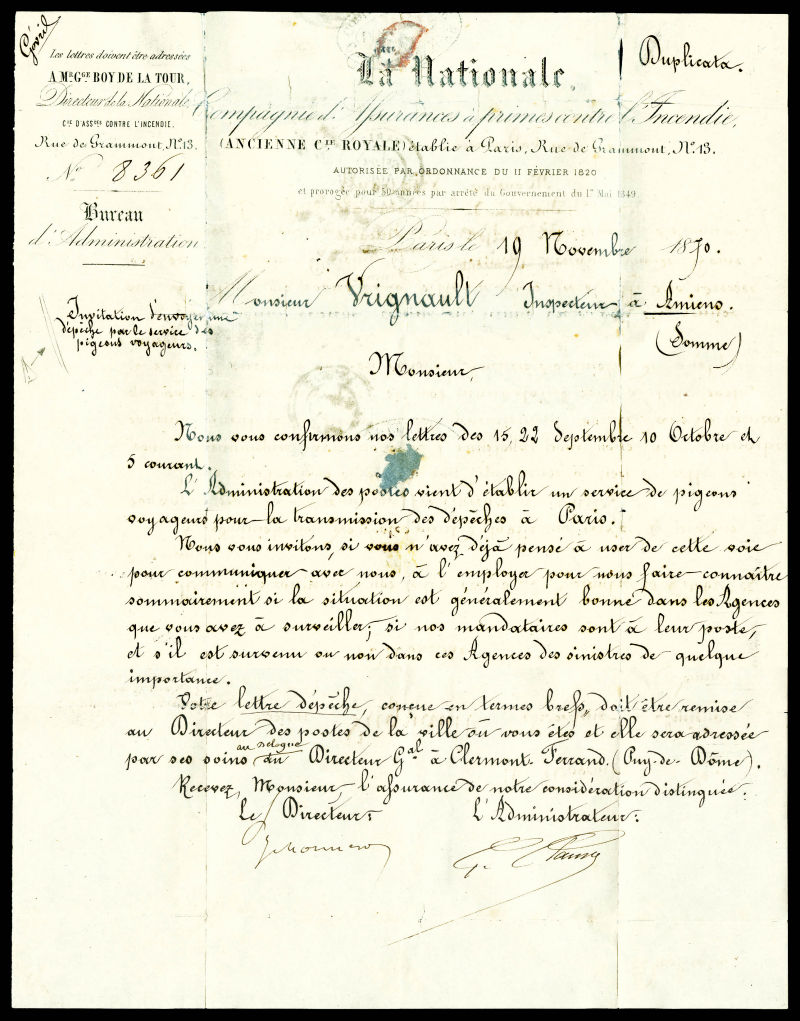 Les lettres doivent être adressées
A Mr Gve BOY DE LA TOUR,
Directeur de la Nationale
Cie D'ASSces CONTRE L'INCENDIE.
Rue de Grammont, No 13.
No 8361
Bureau
d'Administration
Duplicata.
La Nationale,
Compagnie d'Assurances à primes contre l'Incendie,
(ANCIENNE Cie ROYALE) établie à Paris, Rue de Grammont, No 13.
AUTORISÉE PAR ORDONNANCE DU 11 FÉVRIER 1820
et prorogée pour 50 années par arrêté du Gouvernement du 1er Mai 1849
Paris le 19 Novembre 1870.
Monsieur Vrignault Inspecteur à Amiens.
(Somme)
Invitation d'envoyer une
dépêche par le service des
pigeons voyageurs.
Monsieur,
Nous vous confirmons nos lettres des 15, 22 Septembre 10 Octobre et
5 courant.
L'Administration des postes vient d'établir un service de pigeons
voyageurs pour la transmission des dépêches à Paris.
Nous vous invitons, si vous n'avez déjà pensé à user de cette voie
pour communiquer avec nous, à l'employer pour nous faire connaître
sommairement si la situation est généralement bonne dans les Agences
que vous avez à surveiller; si nos mandataires sont à leur poste,
et s'il est survenu ou non dans ces Agences des sinistres de quelque
importance.
Votre lettre dépêche, conçue en termes brefs, doit être remise
au Directeur des postes de la ville où vous êtes et elle sera adressée
par ses soins du au délégué Directeur Gal à Clermont-Ferrand. (Puy-de-Dôme).
Recevez, Monsieur, l'assurance de notre considération distinguée.
Le Directeur: L'Administrateur: